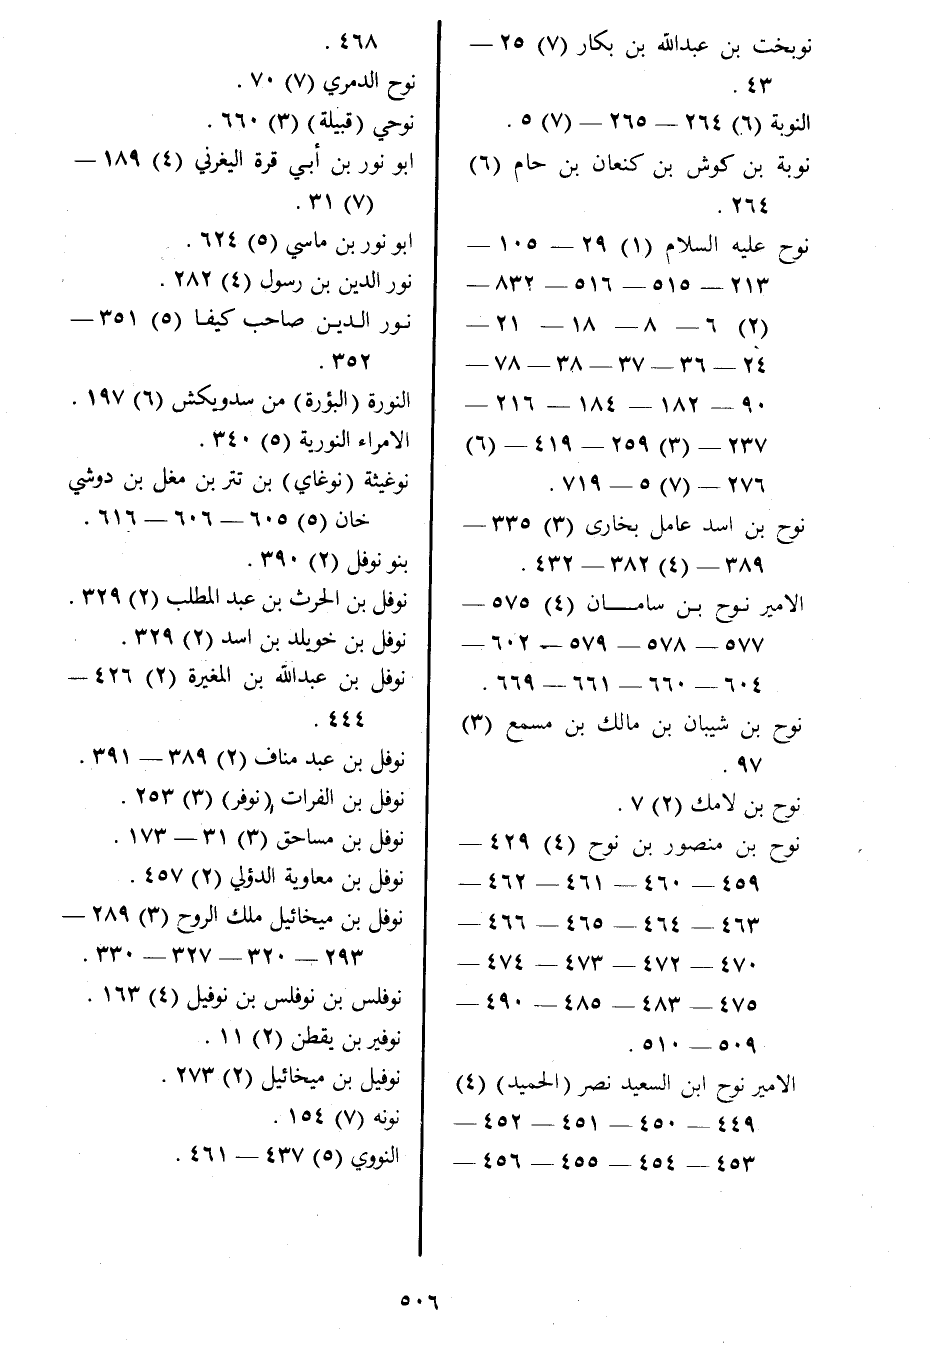 نوبخت بن عبدالله بن بكار (٧) ٢٥ —
٤٣ .
النوبة (٦) ٢٦٤ — ٢٦٥ — (٧) ٥ .
نوبة بن كوش بن كنعان بن حام (٦)
٢٦٤ .
نوح عليه السلام (١) ٢٩ — ١٠٥ —
٢١٣ — ٥١٥ — ٥١٦ — ٨٣٢ —
(٢) ٦ — ٨ — ١٨ — ٢١ —
٢٤ — ٣٦ — ٣٧ — ٣٨ — ٧٨ —
٩٠ — ١٨٢ — ١٨٤ — ٢١٦ —
٢٣٧ — (٣) ٢٥٩ — ٤١٩ — (٦)
٢٧٦ — (٧) ٥ — ٧١٩ .
نوح بن اسد عامل بخارى (٣) ٣٣٥ —
٣٨٩ — (٤) ٣٨٢ — ٤٣٢ .
الامير نوح بن سامان (٤) ٥٧٥ —
٥٧٧ — ٥٧٨ — ٥٧٩ — ٦٠٢ —
٦٠٤ — ٦٦٠ — ٦٦١ — ٦٦٩ .
نوح بن شيبان بن مالك بن مسمع (٣)
٩٧ .
نوح بن لامك (٢) ٧ .
نوح بن منصور بن نوح (٤) ٤٢٩ —
٤٥٩ — ٤٦٠ — ٤٦١ — ٤٦٢ —
٤٦٣ — ٤٦٤ — ٤٦٥ — ٤٦٦ —
٤٧٠ — ٤٧٢ — ٤٧٣ — ٤٧٤ —
٤٧٥ — ٤٨٣ — ٤٨٥ — ٤٩٠ —
٥٠٩ — ٥١٠ .
الامير نوح ابن السعيد نصر (الحميد) (٤)
٤٤٩ — ٤٥٠ — ٤٥١ — ٤٥٢ —
٤٥٣ — ٤٥٤ — ٤٥٥ — ٤٥٦ —
٤٦٨ .
نوح الدمري (٧) ٧٠ .
نوحي (قبيلة) (٣) ٦٦٠ .
ابو نور بن أبي قرة اليغرني (٤) ١٨٩ —
(٧) ٣١ .
ابو نور بن ماسي (٥) ٦٢٤ .
نور الدين بن رسول (٤) ٢٨٢ .
نور الدين صاحب كيفا (٥) ٣٥١ —
٣٥٢ .
النورة (البؤرة) من سدويكش (٦) ١٩٧ .
الامراء النورية (٥) ٣٤٠ .
نوغيثة (نوغاي) بن تتر بن مغل بن دوشي
خان (٥) ٦٠٥ — ٦٠٦ — ٦١٦ .
بنو نوفل (٢) ٣٩٠ .
نوفل بن الحرث بن عبد المطلب (٢) ٣٢٩ .
نوفل بن خويلد بن اسد (٢) ٣٢٩ .
نوفل بن عبدالله بن المغيرة (٢) ٤٢٦ —
٤٤٤ .
نوفل بن عبد مناف (٢) ٣٨٩ — ٣٩١ .
نوفل بن الفرات (نوفر) (٣) ٢٥٣ .
نوفل بن مساحق (٣) ٣١ — ١٧٣ .
نوفل بن معاوية الدؤلي (٢) ٤٥٧ .
نوفل بن ميخائيل ملك الروح (٣) ٢٨٩ —
٢٩٣ — ٣٢٠ — ٣٢٧ — ٣٣٠ .
نوفلس بن نوفلس بن نوفيل (٤) ١٦٣ .
نوفير بن يقطن (٢) ١١ .
نوفيل بن ميخائيل (٢) ٢٧٣ .
نونه (٧) ١٥٤ .
النووي (٥) ٤٣٧ — ٤٦١ .
٥٠٦